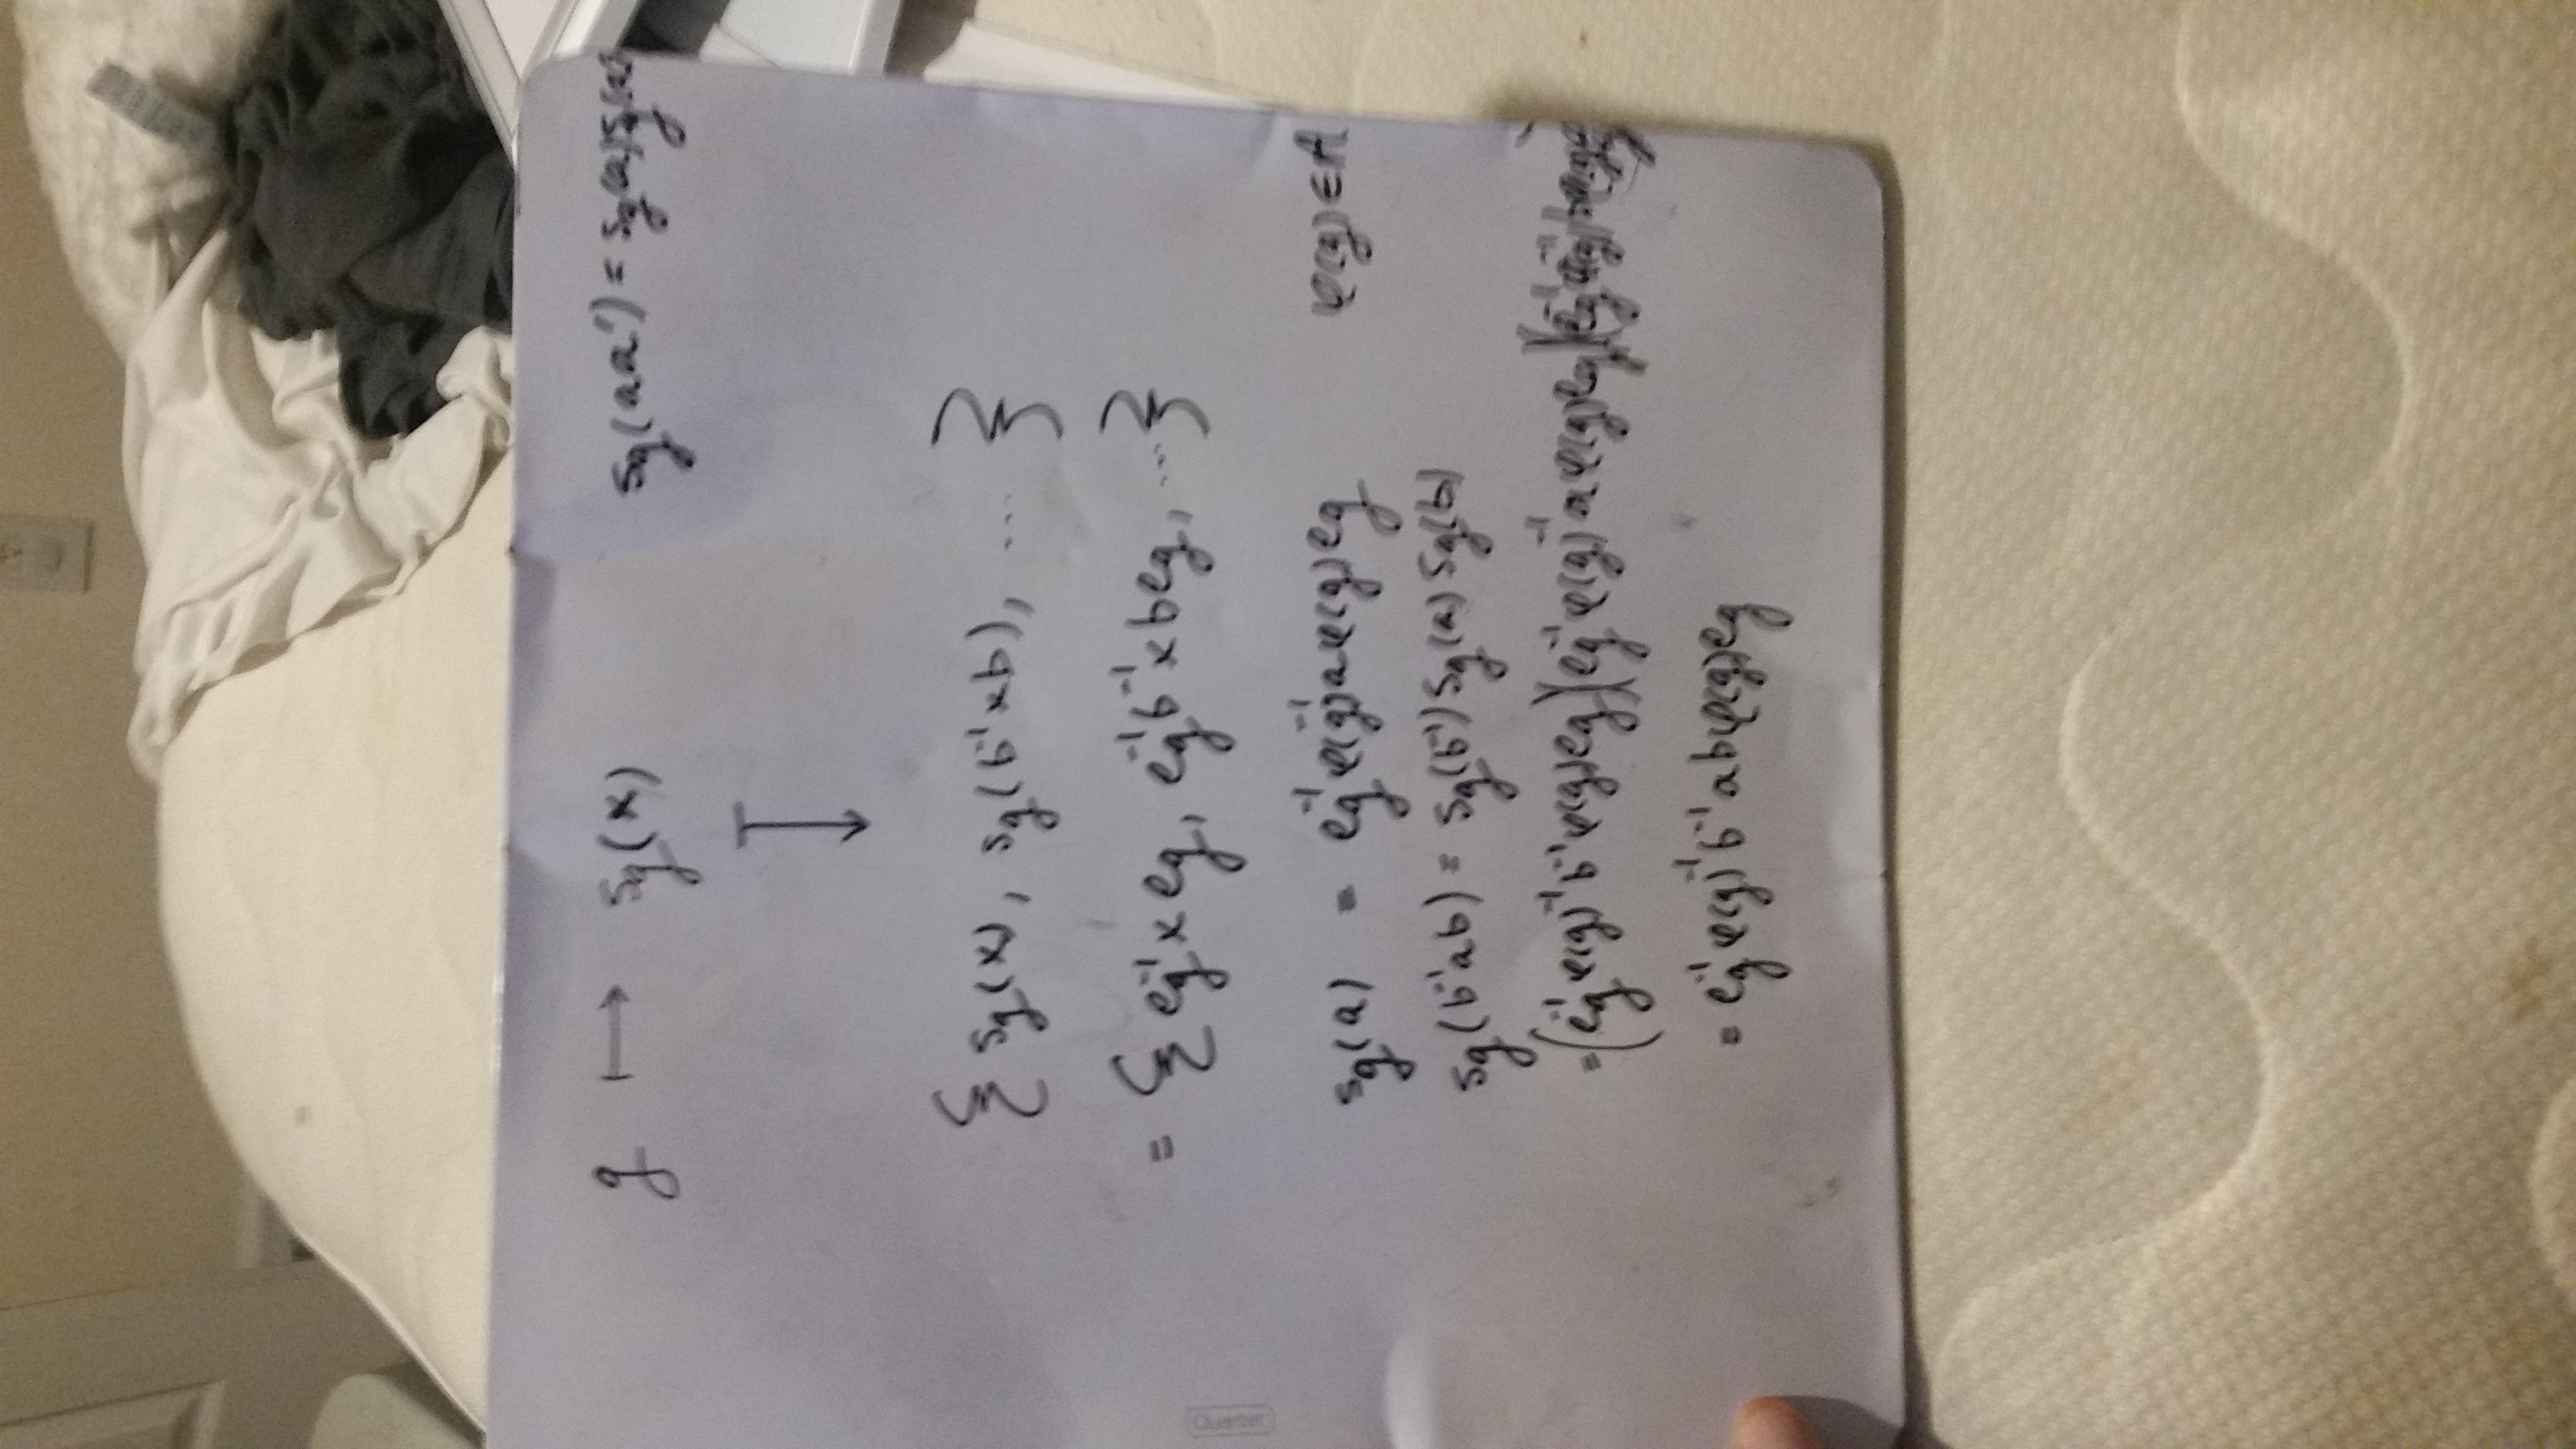 g ↦ s_g(x) s_g(aa') = s_g(a)s_g(a')
↓
{ s_g(x), s_g(b⁻¹xb), ... }
= { e_g⁻¹xe_g, e_g⁻¹b⁻¹xbe_g, ... }
s_g(a) = e_g⁻¹φ(g)⁻¹aφ(g)e_g φ(g)∈A
s_g(b⁻¹ab) = s_g(b⁻¹)s_g(a)s_g(b)
=(e_g⁻¹φ(g)⁻¹b⁻¹φ(g)e_g)(e_g⁻¹φ(g)⁻¹aφ(g)e_g)(e_g⁻¹φ(g)⁻¹bφ(g)e_g)
= e_g⁻¹φ(g)⁻¹b⁻¹abφ(g)e_g
Quartet